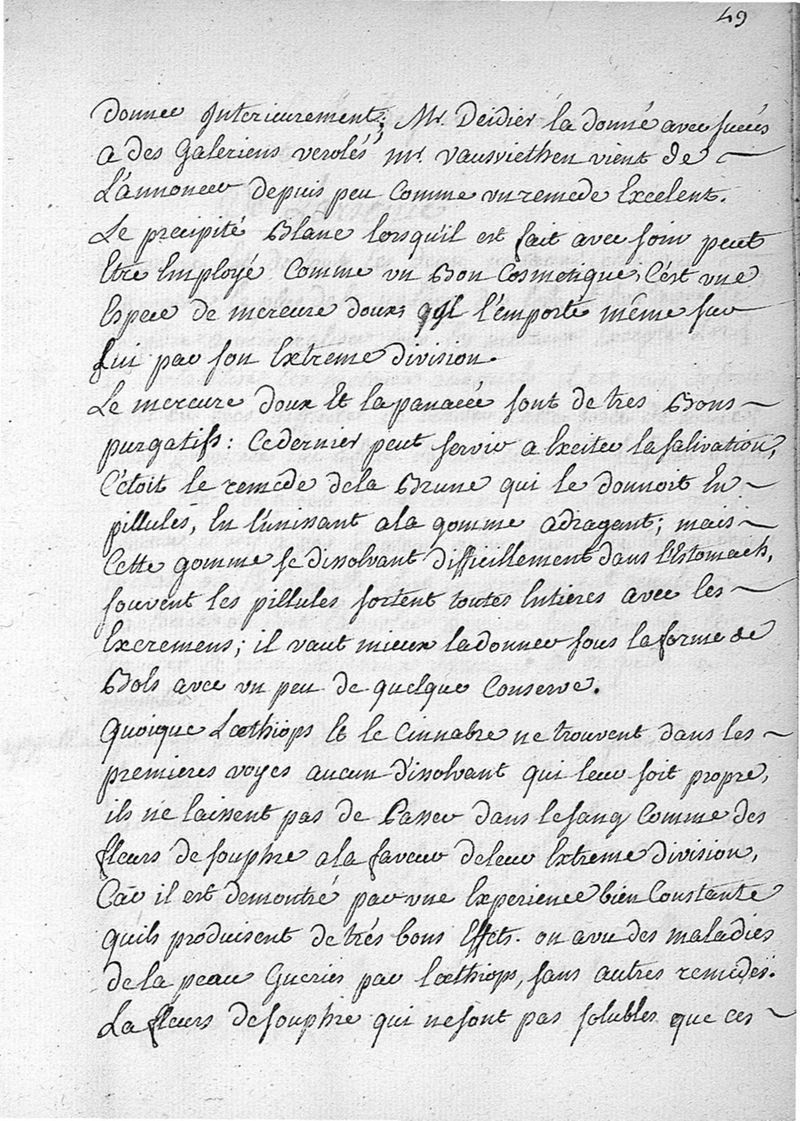 49
donner Interieurement; Mr. Deidier la donné avec succés
a des Galeriens verolés mr. vausviethen vient de
L'annoncer depuis peu Comme un remede Excelent.
Le precipité Blanc lorsqu'il est fait avec soin peut
Etre Employé Comme un Bon Cosmetique, C'est une
Espece de mercure doux; qui l'emporte même sur
lui par son Extreme division.
Le mercure doux Et la panacée sont de tres Bons
purgatifs: Ce dernier peut servir a Exciter la salivation,
C'étoit le remede de la Brune qui le donnoit En
pillules, En l'unissant a la gomme adragent; mais
Cette gomme se dissolvant difficillement dans l'Estomach,
souvent les pillules sortent toutes Entieres avec les
Excremens; il vaut mieux la donner sous la forme de
Bols avec un peu de quelque Conserve.
Quoique Lœthiops Et le Cinnabre ne trouvent dans les
premieres voyes aucun dissolvant qui leur soit propre,
ils ne laissent pas de Passer dans le sang Comme des
fleurs de souphre a la faveur de leur Extreme division,
Car il est demontré par une Experience bien Constante
qu'ils produisent de trés bons Effets. on a vu des maladies
de la peau Gueries par lœthiops, sans autres remedes.
La fleurs de souphre qui ne sont pas solubles que ces